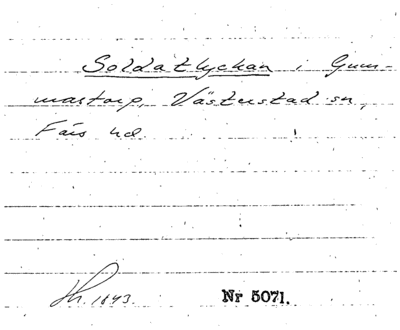 Soldatlyckan i Gum-
mastorp, Västerstad sn,
Färs hd
Lh. 1843. Nr 5071.